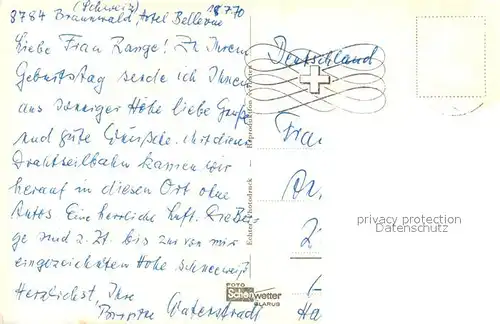 (Schweiz)
8784 Braunwald, Hotel Bellevue 18.7.70
Liebe Frau Range! Zu Ihrem
Geburtstag sende ich Ihnen
aus sonniger Höhe liebe Grüße
und gute Wünsche. Mit dieser
Drahtseilbahn kamen wir
herauf in diesen Ort ohne
Autos. Eine herrliche Luft. Die Ber-
ge sind z. Zt. bis zur von mir
eingezeichneten Höhe schneeweiß
Herzlichst, Ihre
Waterstradt
Deutschland
Frau
Dr.
Ha
Echter Photodruck - Reproduktion verboten
FOTO
Schönwetter
GLARUS
privacy protection
DATENSCHUTZ